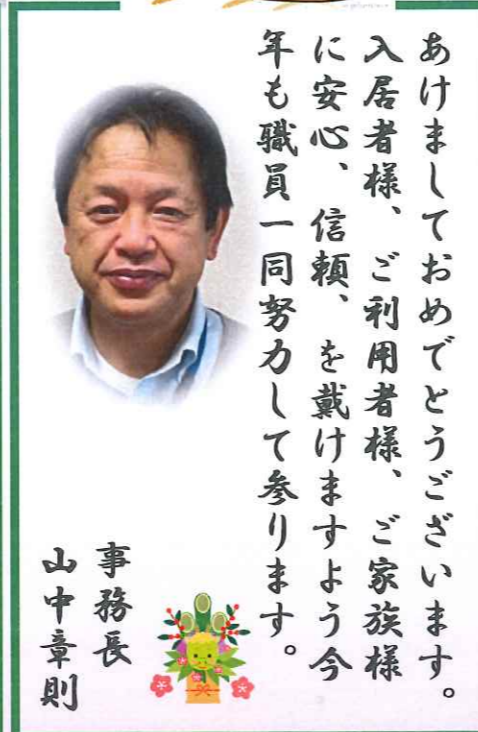 あけましておめでとうございます。
入居者様、ご利用者様、ご家族様
に安心、信頼、を戴けますよう今
年も職員一同努力して参ります。
事務長
山中章則